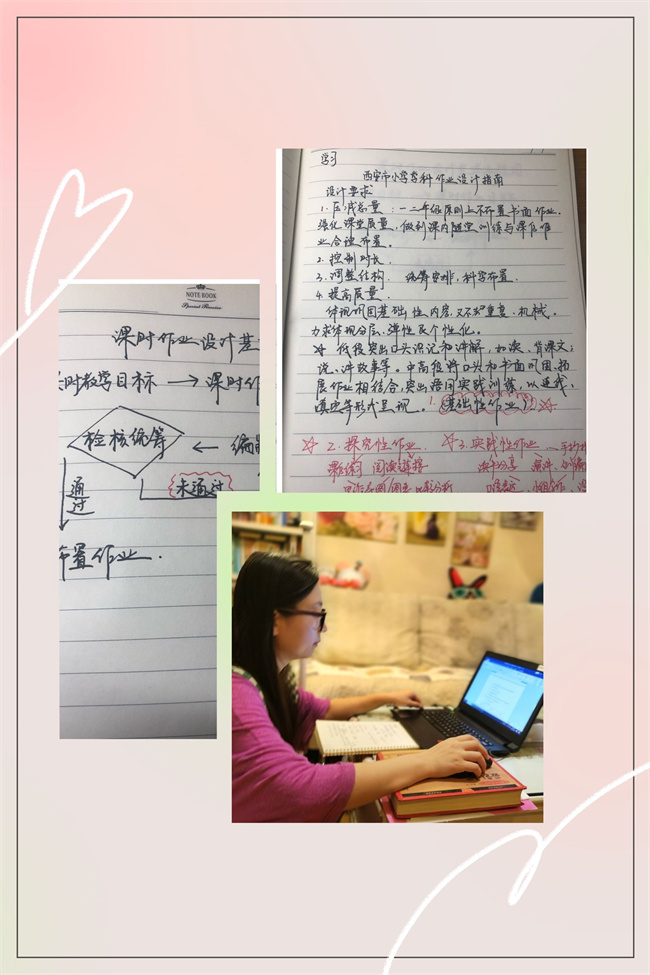 学习
西安市小学学科作业设计指南
设计要求
1. 压减总量：一二年级原则上不布置书面作业。
强化课堂质量，做到课内随堂训练与课后作
业合理布置。
2. 控制时长.
3. 调整结构. 统筹安排，科学布置.
4. 提高质量.
体现巩固基础性内容，又不重复、机械。
力求体现分层、弹性及个性化。
低段突出口头识记和讲解，如读、背课文，
说、讲故事等。中高段将口头和书面巩固、拓
展作业相结合，突出语用实践训练，以连线，
填空等形式呈现。 1. 基础性作业
2. 探究性作业. 3. 实践性作业
阅读链接
NOTE BOOK
课时作业设计基
课时教学目标 → 课时作
检核统筹 ← 编
通过
未通过
布置作业.